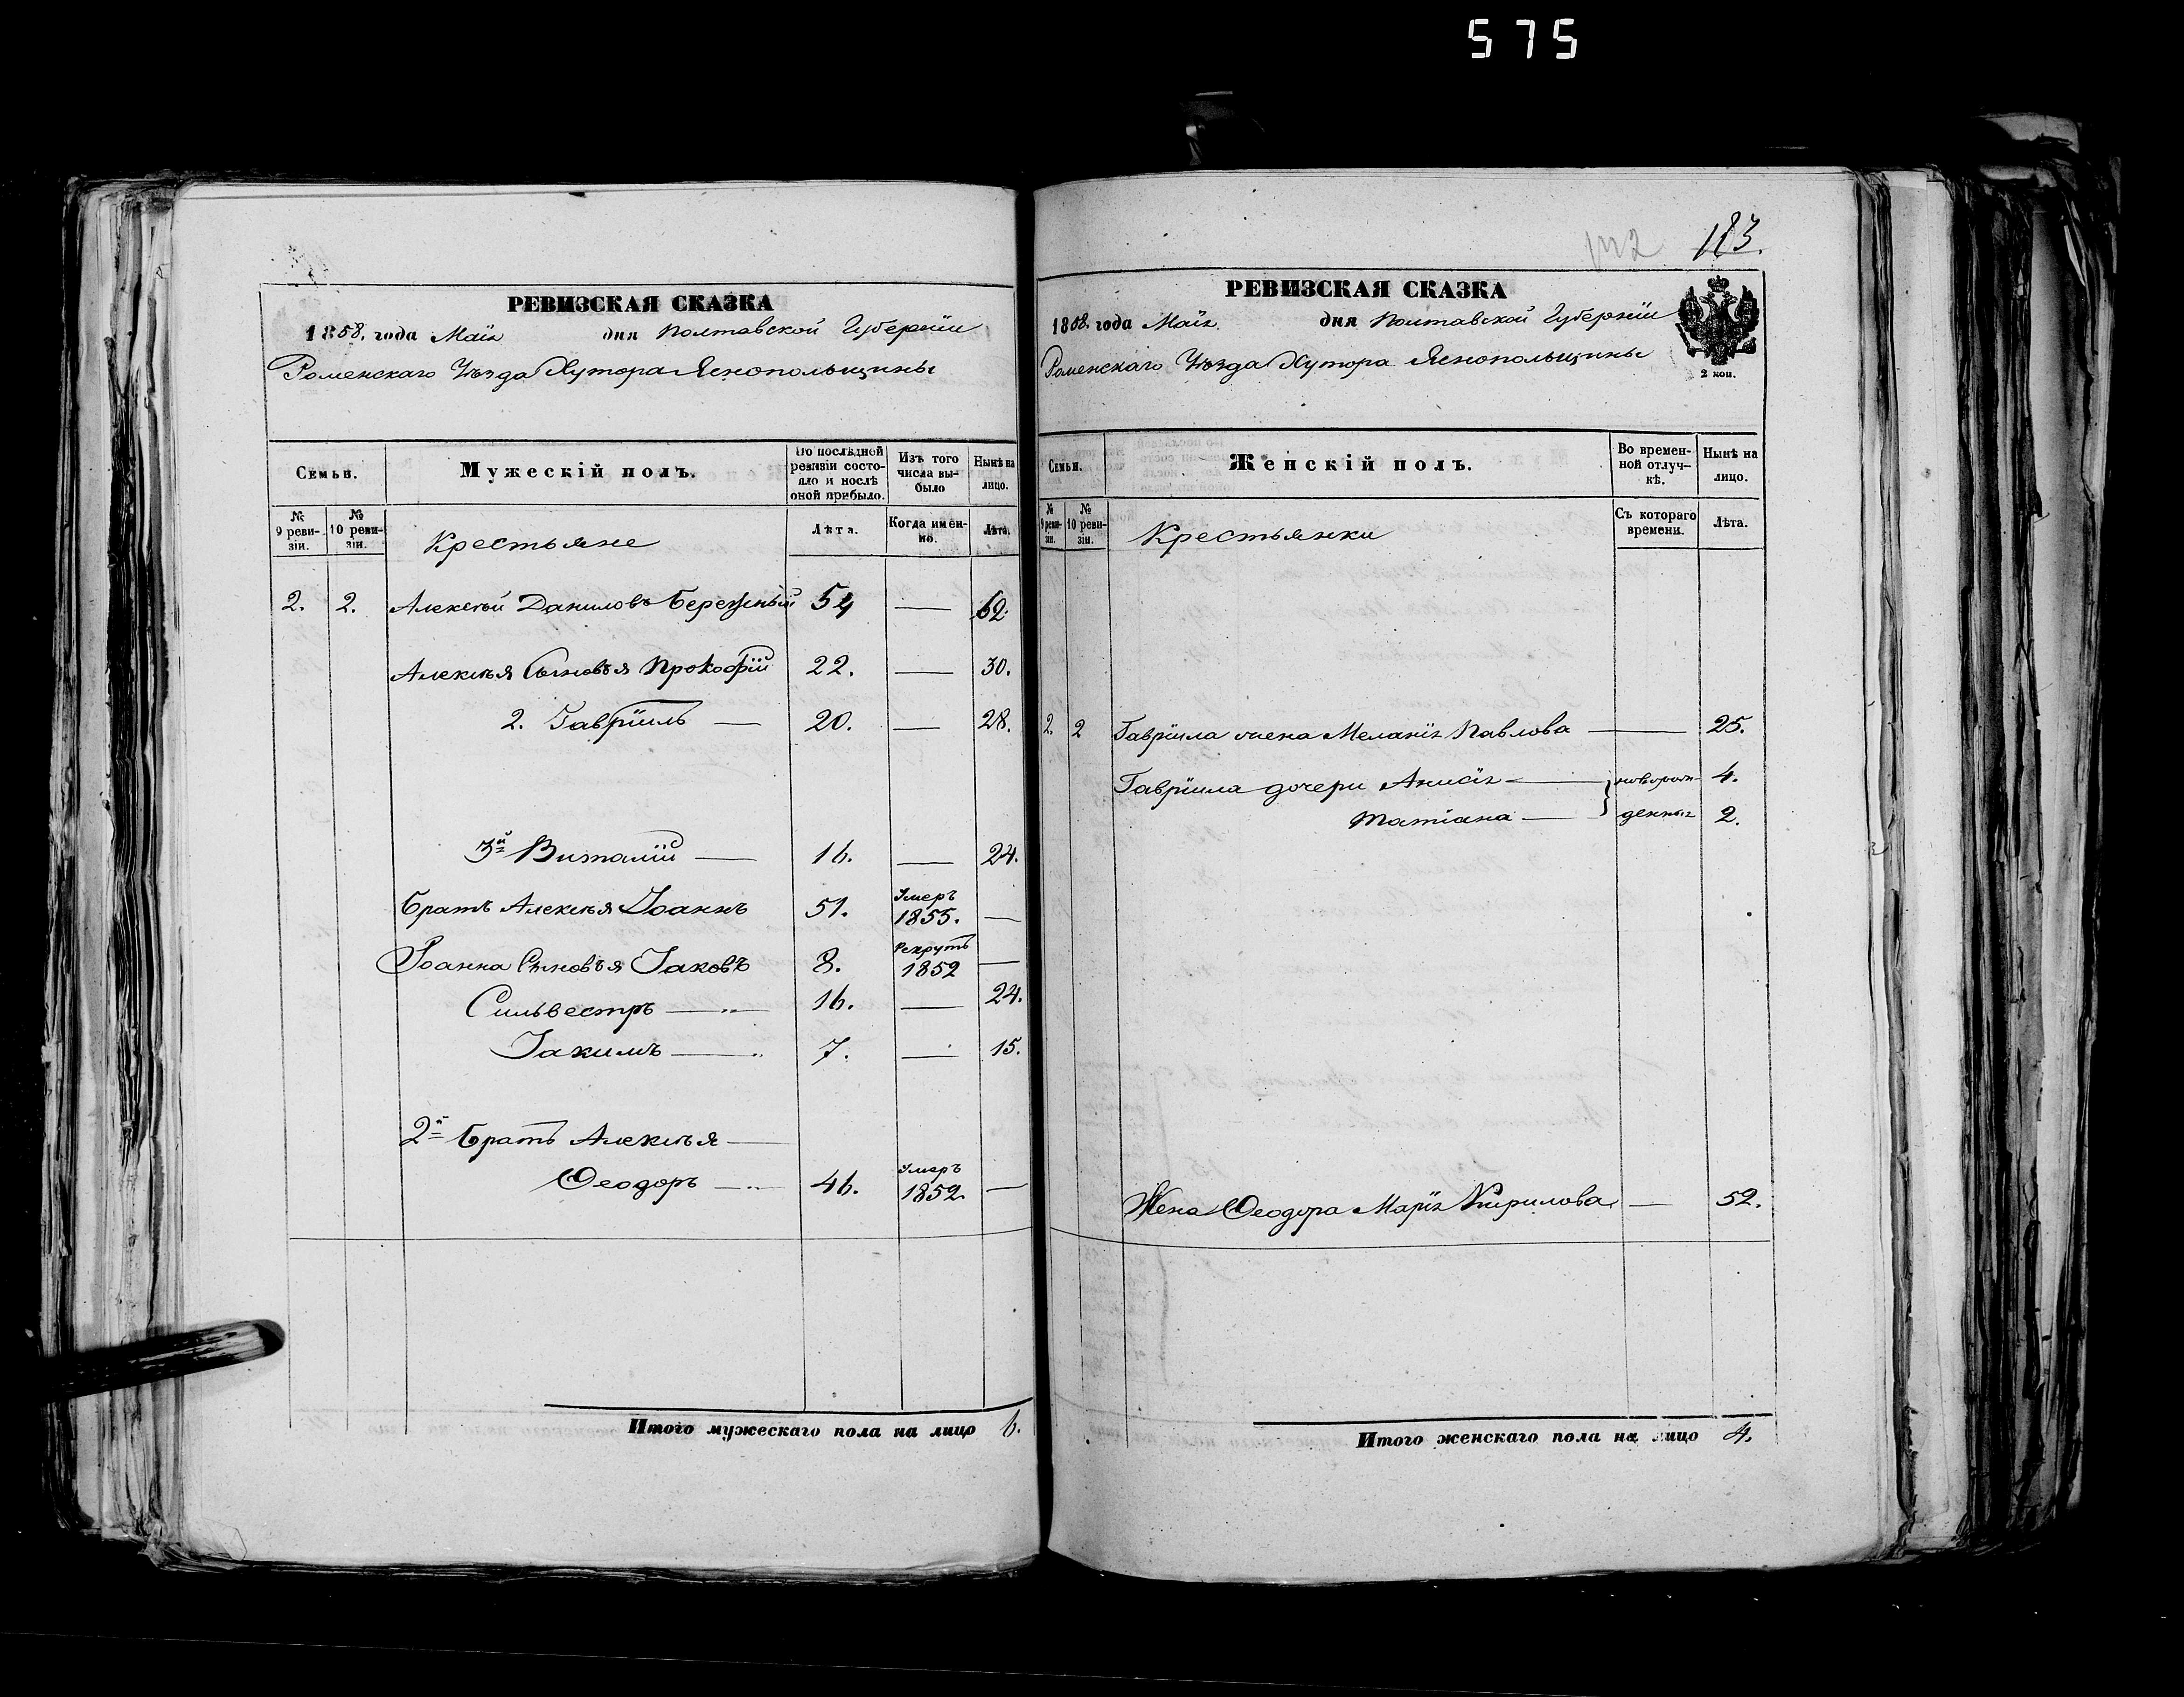 575
122 183.
РЕВИЗСКАЯ СКАЗКА
1858. года Маія дня Полтавской Губерніи
Роменскаго Уѣзда Хутора Яснопольщины
Семьи. Мужескій полъ. По послѣдной ревизіи состояло и послѣ оной прибыло. Изъ того числа выбыло Нынѣ на лицо.
№ 9 ревизіи. № 10 ревизіи. Крестьяне Лѣта. Когда именно. Лѣта.
2. 2. Алексѣй Даниловъ Бережный 54 — 62.
Алексѣя Сыновья Прокофій 22. — 30.
2. Гавріилъ — 20. — 28.
3й Виталій — 16. — 24.
Братъ Алексѣя Іоаннъ 51. Умеръ 1855. —
Іоанна Сыновья Іаковъ 8. Рекрутъ 1852 —
Сильвестръ — 16. — 24.
Іакимъ — 7. — 15.
2й Братъ Алексѣя —
Ѳеодоръ — 46. Умеръ 1852. —
Итого мужескаго пола на лицо 6.
РЕВИЗСКАЯ СКАЗКА
1858. года Маія дня Полтавской Губерніи
Роменскаго Уѣзда Хутора Яснопольщины
2 коп.
Семьи. Женскій полъ. Во временной отлучкѣ. Нынѣ на лицо.
№ 9 ревизіи. № 10 ревизіи. Крестьянки Съ котораго времени. Лѣта.
2. 2 Гавріила жена Меланія Павлова — 25.
Гавріила дочери Анисія — новорож- 4.
Татіана — денныя 2.
Жена Ѳеодора Марія Кирилова — 52.
Итого женскаго пола на лицо 4.